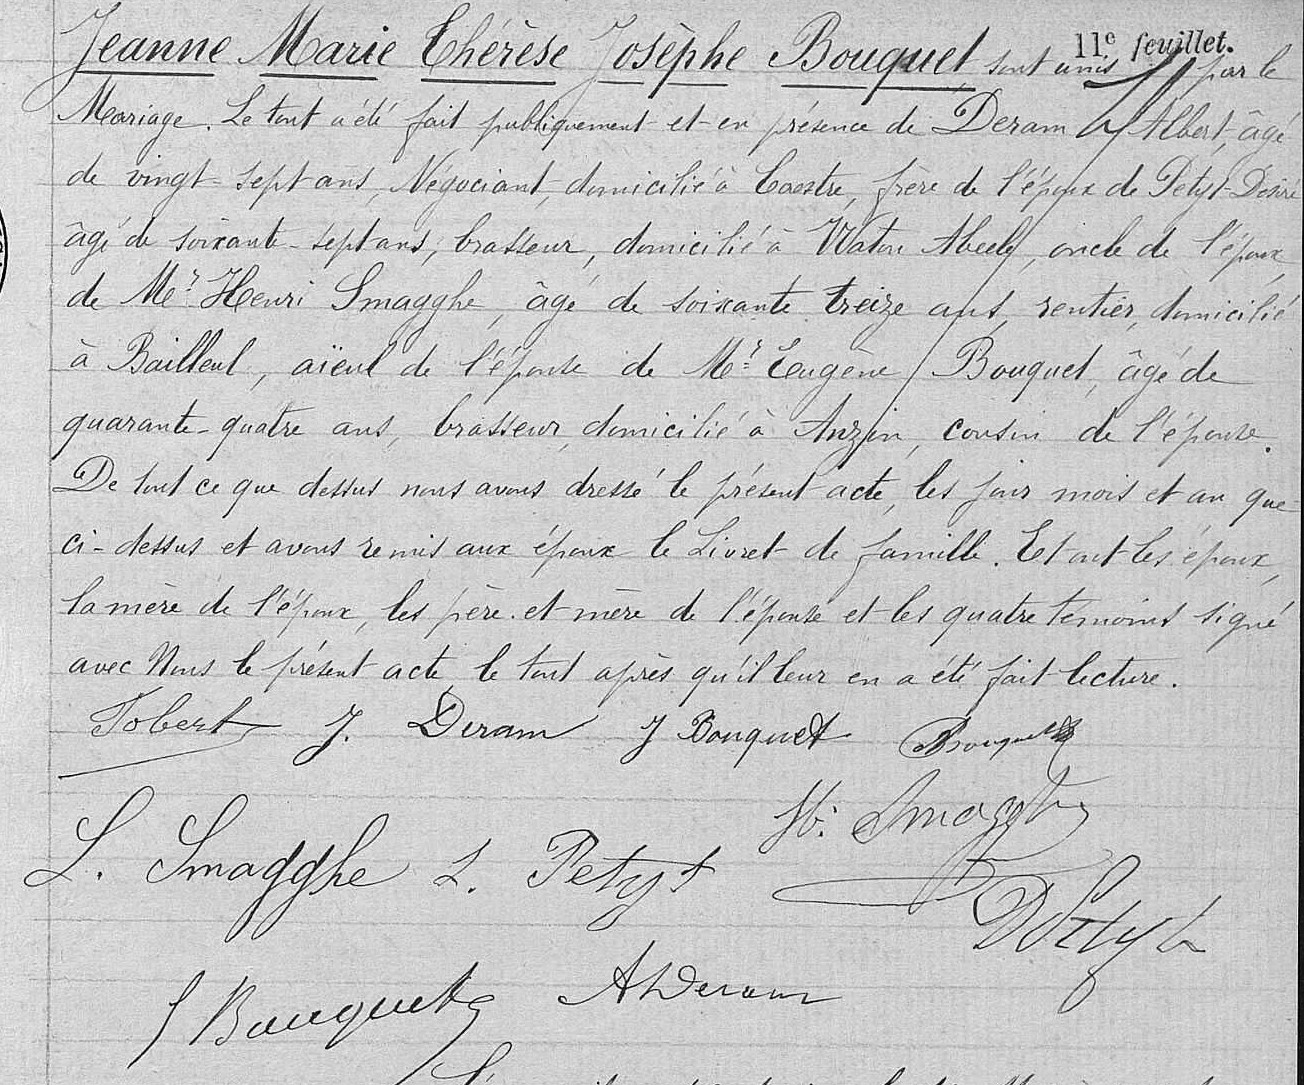 11e feuillet.
Jeanne Marie Thérèse Josèphe Bouquet sont unis par le
Mariage. Le tout a été fait publiquement et en présence de Deram Albert, âgé
de vingt-sept ans, Négociant, domicilié à Caestre, frère de l'époux de Petyt Désiré
âgé de soixante-sept ans, brasseur, domicilié à Watou Abeele, oncle de l'époux,
de Mr Henri Smagghe, âgé de soixante treize ans, rentier, domicilié
à Bailleul, aïeul de l'épouse de Mr Eugène Bouquet, âgé de
quarante-quatre ans, brasseur, domicilié à Anzin, cousin de l'épouse.
De tout ce que dessus nous avons dressé le présent acte, les jour mois et an que
ci-dessus et avons remis aux époux le Livret de famille. Et ont les époux,
la mère de l'époux, les père et mère de l'épouse et les quatre témoins signé
avec Nous le présent acte le tout après qu'il leur en a été fait lecture.
J. Deram J Bouquet Bouquet
H. Smagghe
L. Smagghe L. Petyt
D Petyt
Bouquet A Deram